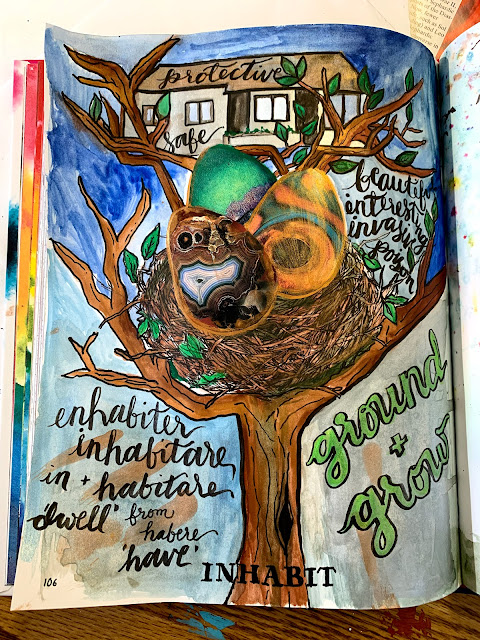 protective
safe
beautiful
interesting
invasive
poison
enhabiter
inhabitare
in + habitare
'dwell' from
habere
'have'
ground
+
grow
INHABIT
106